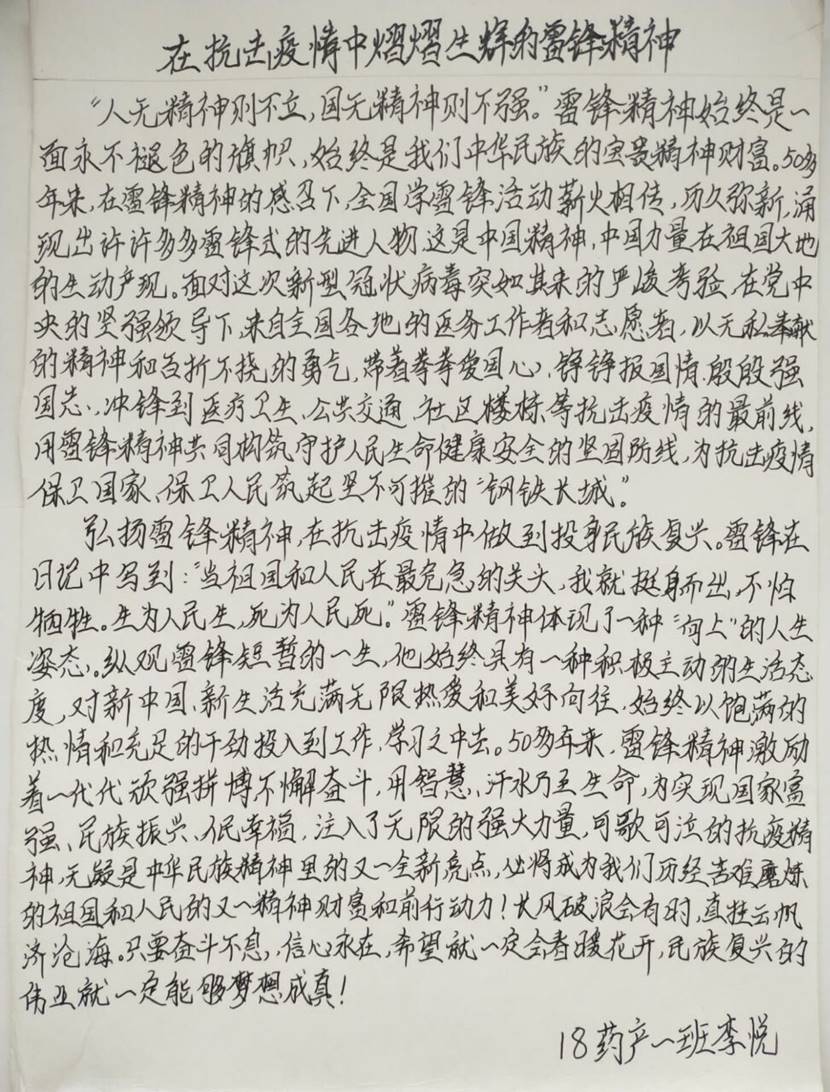 在抗击疫情中熠熠生辉的雷锋精神
“人无精神则不立，国无精神则不强。”雷锋精神始终是一
面永不褪色的旗帜，始终是我们中华民族的宝贵精神财富。50多
年来，在雷锋精神的感召下，全国学雷锋活动薪火相传，历久弥新，涌
现出许许多多雷锋式的先进人物。这是中国精神，中国力量在祖国大地
的生动产现。面对这次新型冠状病毒突如其来的严峻考验，在党中
央的坚强领导下，来自全国各地的医务工作者和志愿者，以无私奉献
的精神和百折不挠的勇气，带着拳拳爱国心、铮铮报国情、殷殷强
国志、冲锋到医疗卫生、公共交通、社区楼栋等抗击疫情的最前线，
用雷锋精神共同构筑守护人民生命健康安全的坚固防线，为抗击疫情
保卫国家、保卫人民筑起坚不可摧的“钢铁长城”。
弘扬雷锋精神，在抗击疫情中做到投身民族复兴。雷锋在
日记中写到：“当祖国和人民在最危急的关头，我就挺身而出，不怕
牺牲。生为人民生，死为人民死。”雷锋精神体现了一种“向上”的人生
姿态。纵观雷锋短暂的一生，他始终具有一种积极主动的生活态
度，对新中国、新生活充满无限热爱和美好向往，始终以饱满的
热情和充足的干劲投入到工作，学习之中去。50多年来，雷锋精神激励
着一代代顽强拼博，不懈奋斗，用智慧、汗水乃至生命，为实现国家富
强、民族振兴、人民幸福，注入了无限的强大力量，可歌可泣的抗疫精
神，无疑是中华民族精神里的又一全新亮点，必将成为我们历经苦难磨炼
的祖国和人民的又一精神财富和前行动力！长风破浪会有时，直挂云帆
济沧海。只要奋斗不息，信心永在，希望就一定会春暖花开，民族复兴的
伟业就一定能够梦想成真！
18药产一班李悦